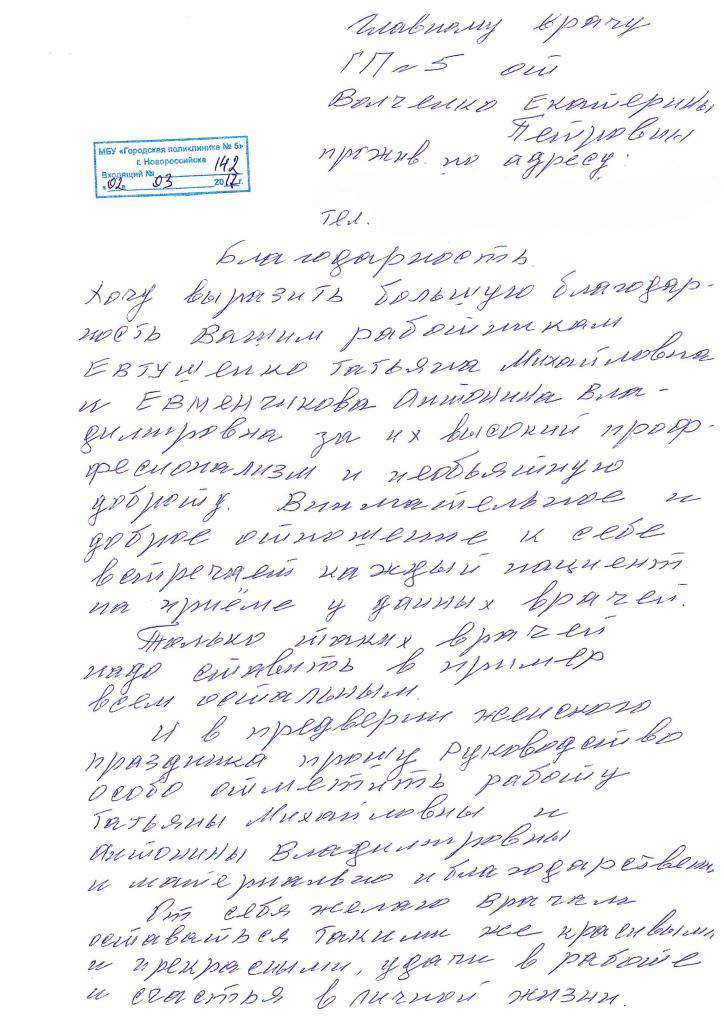 Главному врачу
ГП №5 от
Волченко Екатерины
Петровны
прожив. по адресу:
МБУ «Городская поликлиника № 5»
г. Новороссийска
Входящий № 142
«02» 03 2017г.
тел.
Благодарность.
Хочу выразить большую благодар-
ность Вашим работникам
Евтушенко Татьяна Михайловна
и Евменчикова Антонина Вла-
димировна за их высокий проф-
фесионализм и необъятную
доброту. Внимательное и
доброе отношение к себе
встречает каждый пациент
на приёме у данных врачей.
Только таких врачей
надо ставить в пример
всем остальным.
И в предверии женского
праздника прошу Руководство
особо отметить работу
Татьяны Михайловны и
Антонины Владимировны
и материально и благодарствен
От себя желаю врачам
оставаться такими же красивыми
и прекрасными, удачи в работе
и счастья в личной жизни.